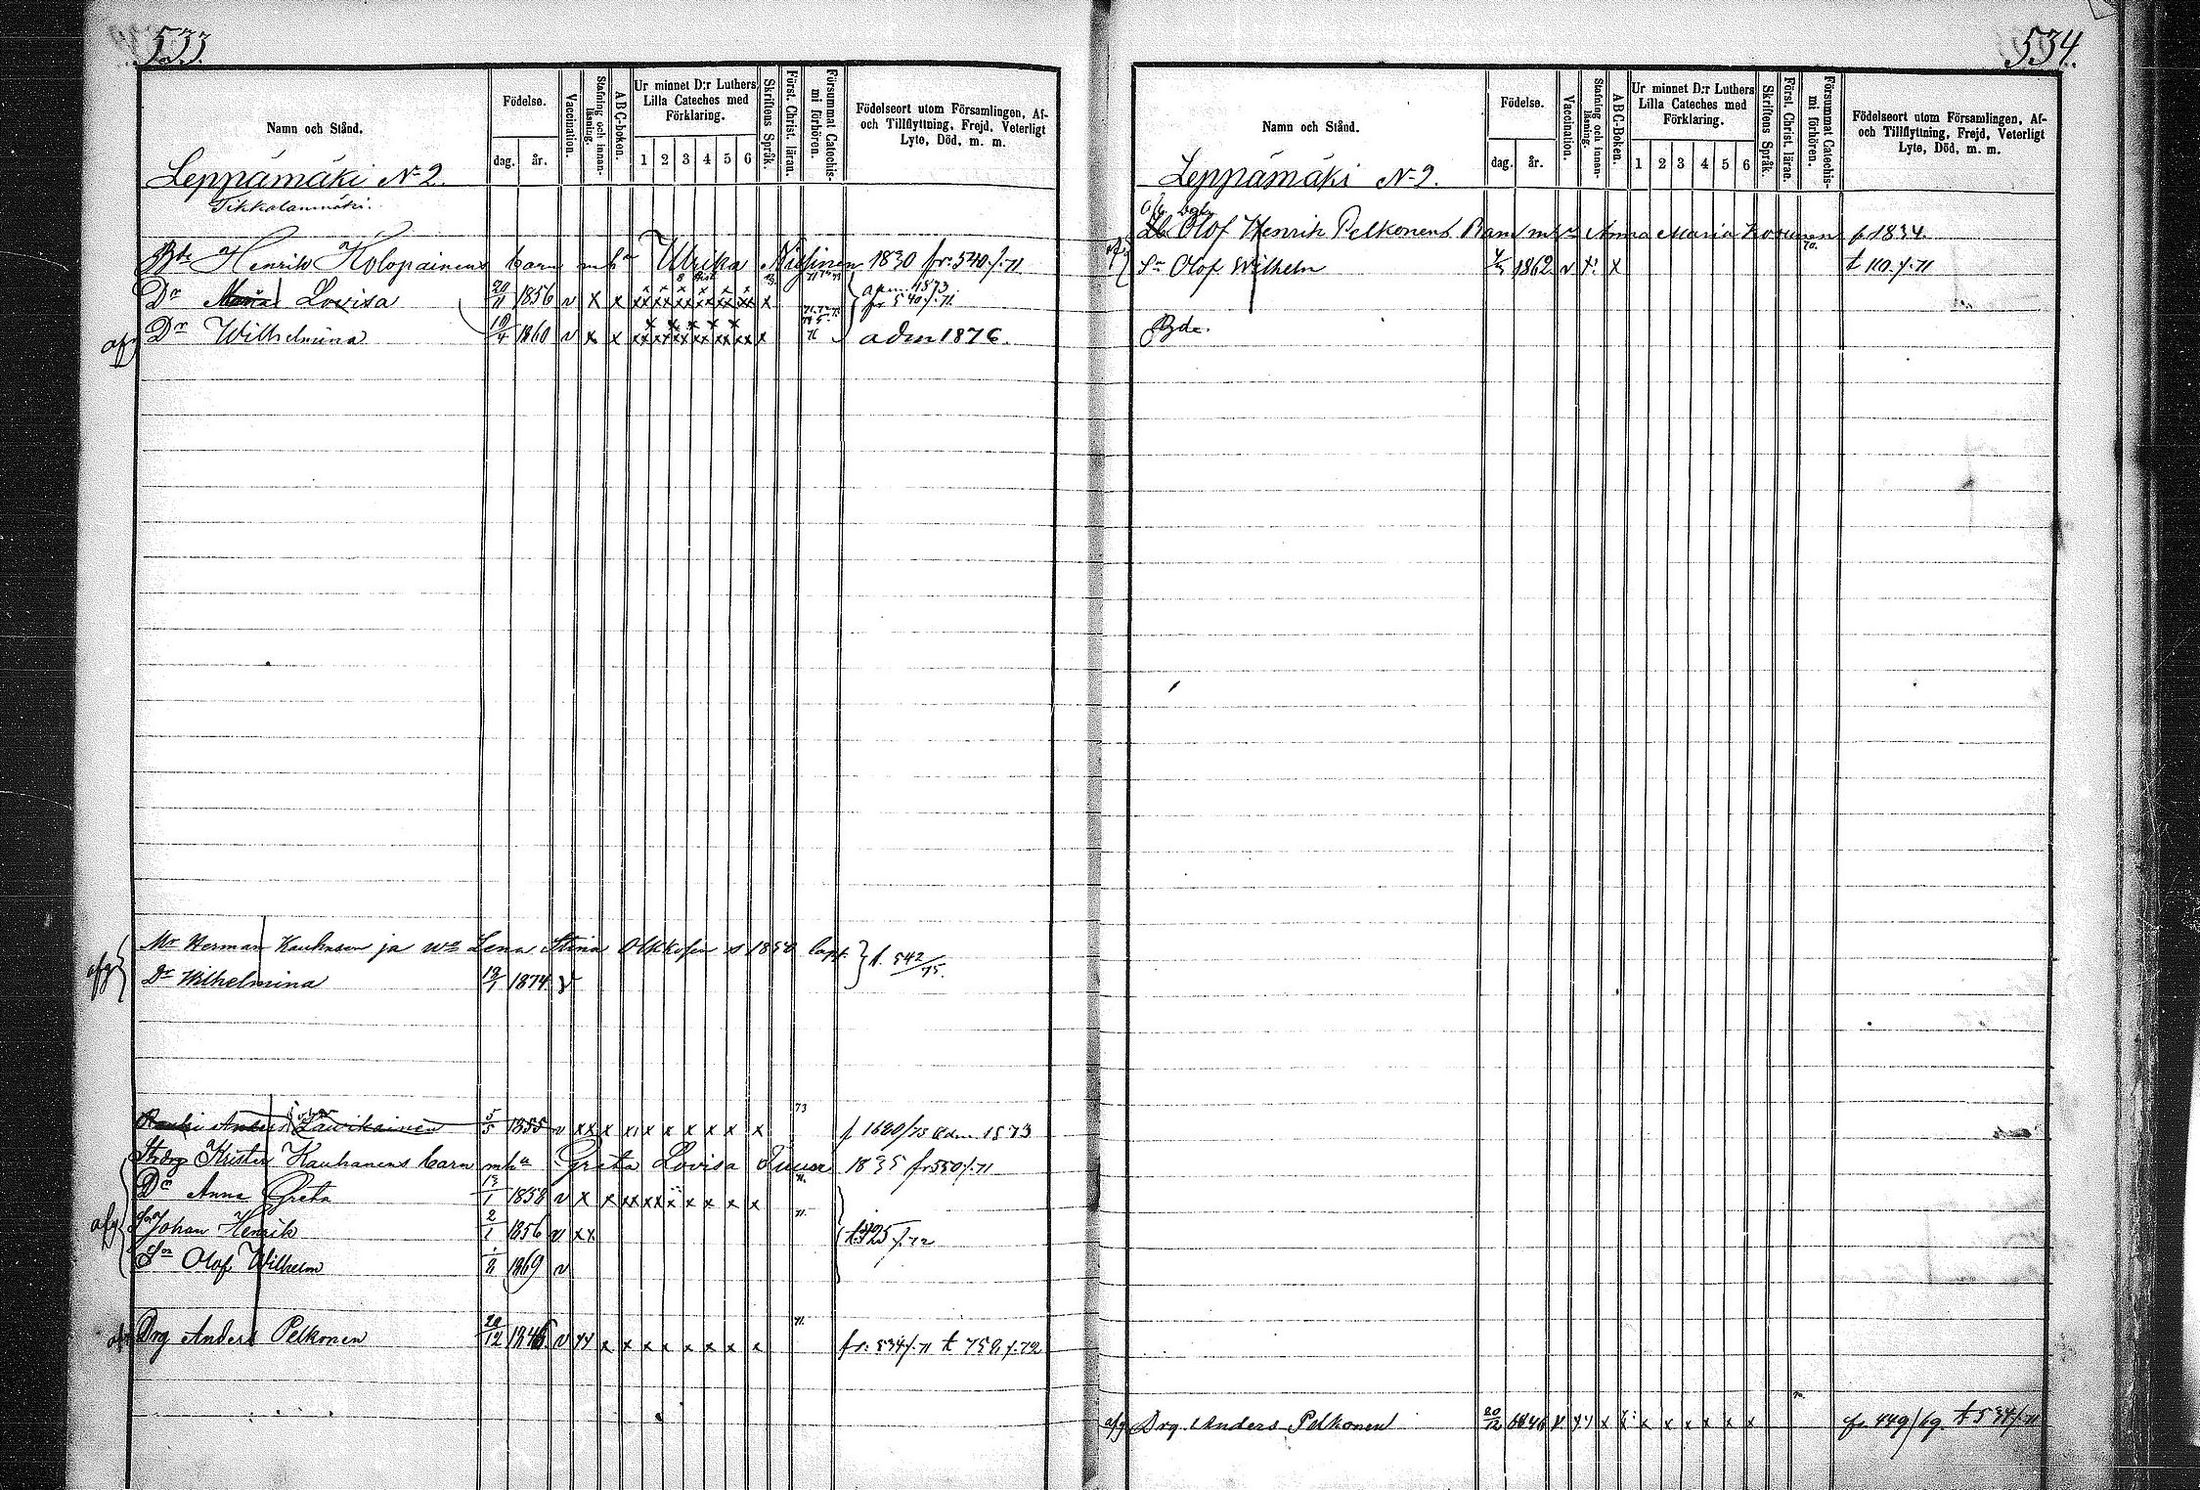 533.
Namn och Stånd.
Födelse.
dag.
år.
Vaccination.
Stafning och innan-läsning.
ABC-boken.
Ur minnet D:r Luthers Lilla Cateches med Förklaring.
1 2 3 4 5 6
Skriftens Språk.
Först. Christ. läran.
Försummat Catechis-mi förhören.
Födelseort utom Församlingen, Af-
och Tillflyttning, Frejd, Veterligt
Lyte, Död, m. m.
Leppämäki No 2.
Tikkalanmäki.
Bde Henrik Holopainens barn m ha Ulrika 1830 fr. 540 /. 71
Dr Maria Lovisa 20/11 1856 v x x adm. 1873 fr 540 /. 71
Dr Wilhelmina 19/4 1860 v x x adm 1876.
afg
Mr Herman Kauhanen ja Lena Stina 1850
Dr Wilhelmina 1874 v t. 542/75.
afg
Anders 5/5 1855 v xx x x x x x x x 73 adm 1873
Krister Kauhanens barn m ha Greta Lovisa 1835 fr 550 /. 71
Dr Anna Greta 13/1 1858 v x x
Son Johan Henrik 2/1 1856 v xx
Son Olof Wilhelm 1869 v
afg
Drg Anders Pelkonen 20/12 1846 v xx x x x x x x x 71. fr. 534 /. 71 t 759 /. 72
534.
Namn och Stånd.
Födelse.
dag.
år.
Vaccination.
Stafning och innan-läsning.
ABC-Boken.
Ur minnet D:r Luthers Lilla Cateches med Förklaring.
1 2 3 4 5 6
Skriftens Språk.
Först. Christ. läran.
Försummat Catechis-mi förhören.
Födelseort utom Församlingen, Af-
och Tillflyttning, Frejd, Veterligt
Lyte, Död, m. m.
Leppämäki No 2.
Olof Henrik Pelkonens Barn m ha Anna Maria f 1834.
Sn Olof Wilhelm 1862 v x x t 110 /. 71
Bde.
afg Drg Anders Pelkonen 20/12 1846 v xx x x x x x x x fr 449/69. t 534 /. 71